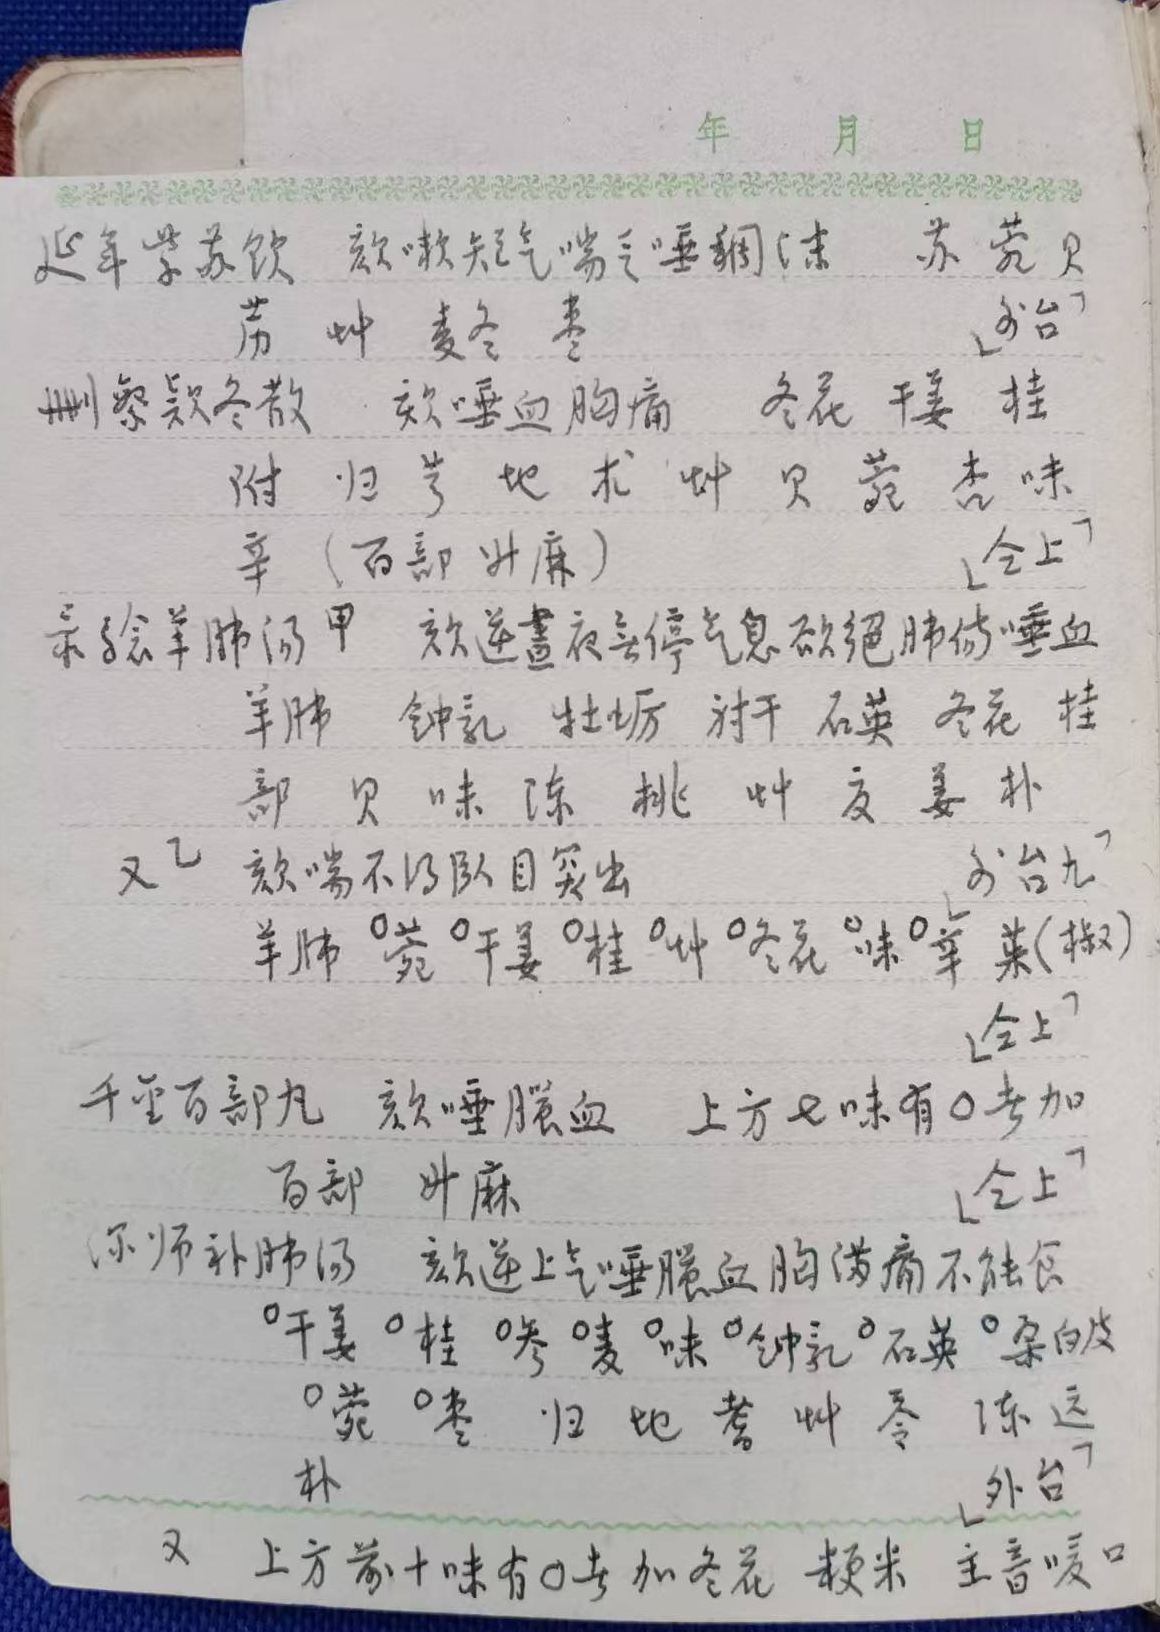 年 月 日
延年紫苏饮 欬嗽短气喘乏唾稠沫 苏 菀 贝
苈 艸 麦冬 枣 「外台」
删繁款冬散 欬唾血胸痛 冬花 干姜 桂
附 归 芎 地 术 艸 贝 菀 杏 味
辛 (百部 升麻) 「仝上」
录验羊肺汤甲 欬逆晝夜无停气息欲絕肺伤唾血
羊肺 钟乳 牡蛎 射干 石英 冬花 桂
部 贝 味 陈 桃 艸 夏 姜 朴
又乙 欬喘不得臥目突出 「外台九」
羊肺 °菀 °干姜 °桂 °艸 °冬花 °味 °辛 茱(椒)
「仝上」
千金百部丸 欬唾膿血 上方七味有○者加
百部 升麻 「仝上」
深师补肺汤 欬逆上气唾膿血胸满痛不能食
°干姜 °桂 °参 °麦 °味 °钟乳 °石英 °桑白皮
°菀 °枣 归 地 耆 艸 苓 陈 远
朴 「外台」
又 上方前十味有○者加冬花 粳米 主音喑口